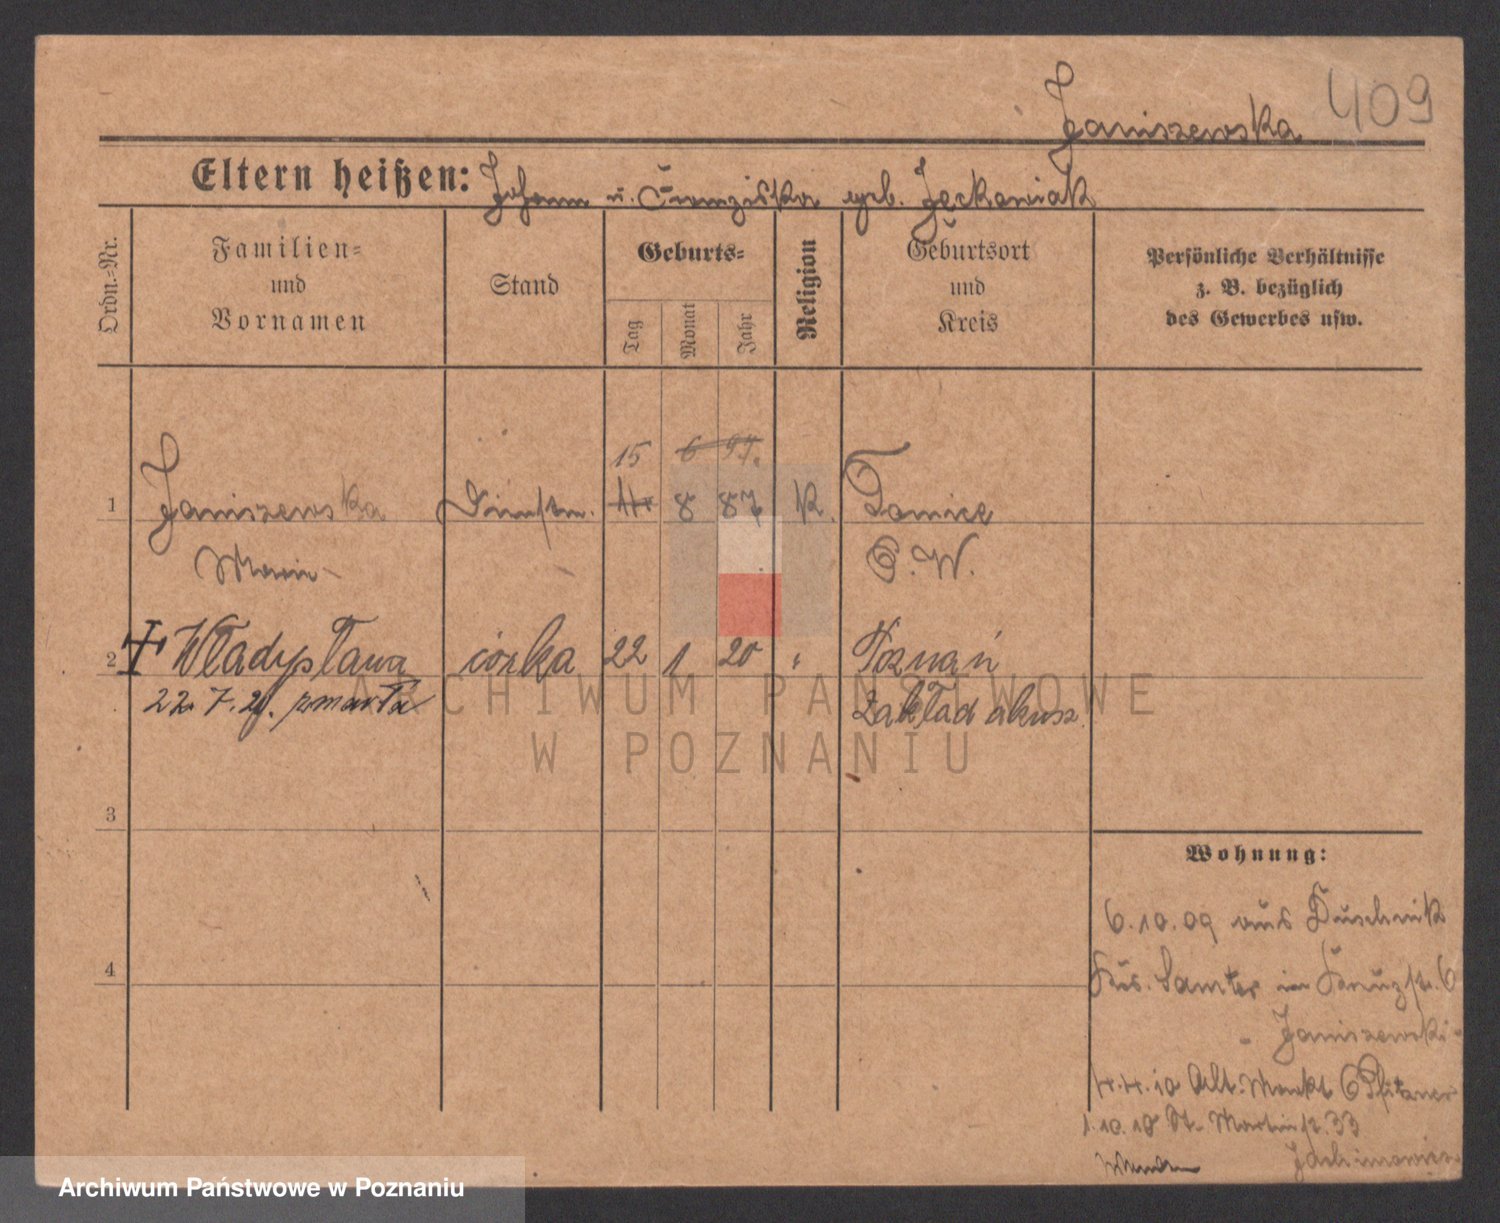 Janiszewska 409
Eltern heißen: Johann u. Franziska geb. Jeckowiak
Ordn.-Nr.
Familien-
und
Vornamen
Stand
Geburts-
Tag
Monat
Jahr
Religion
Geburtsort
und
Kreis
Persönliche Verhältnisse
z. B. bezüglich
des Gewerbes usw.
15 6 97.
1 Janiszewska 8 87 K. Tomice
Marie P. W.
2 Władysława córka 22 1 20 " Poznań
22. 7. 20. zmarła Zakład akusz.
ARCHIWUM PAŃSTWOWE
W POZNANIU
3
4
Wohnung:
6.10.09 aus Duschnik
Krs. Samter in Kreuzstr. 6
- Janiszewski -
4.4.10 Alt. Markt 6 Pfitzner
1.10.18 St. Martinstr. 33
Jachimowicz
Archiwum Państwowe w Poznaniu